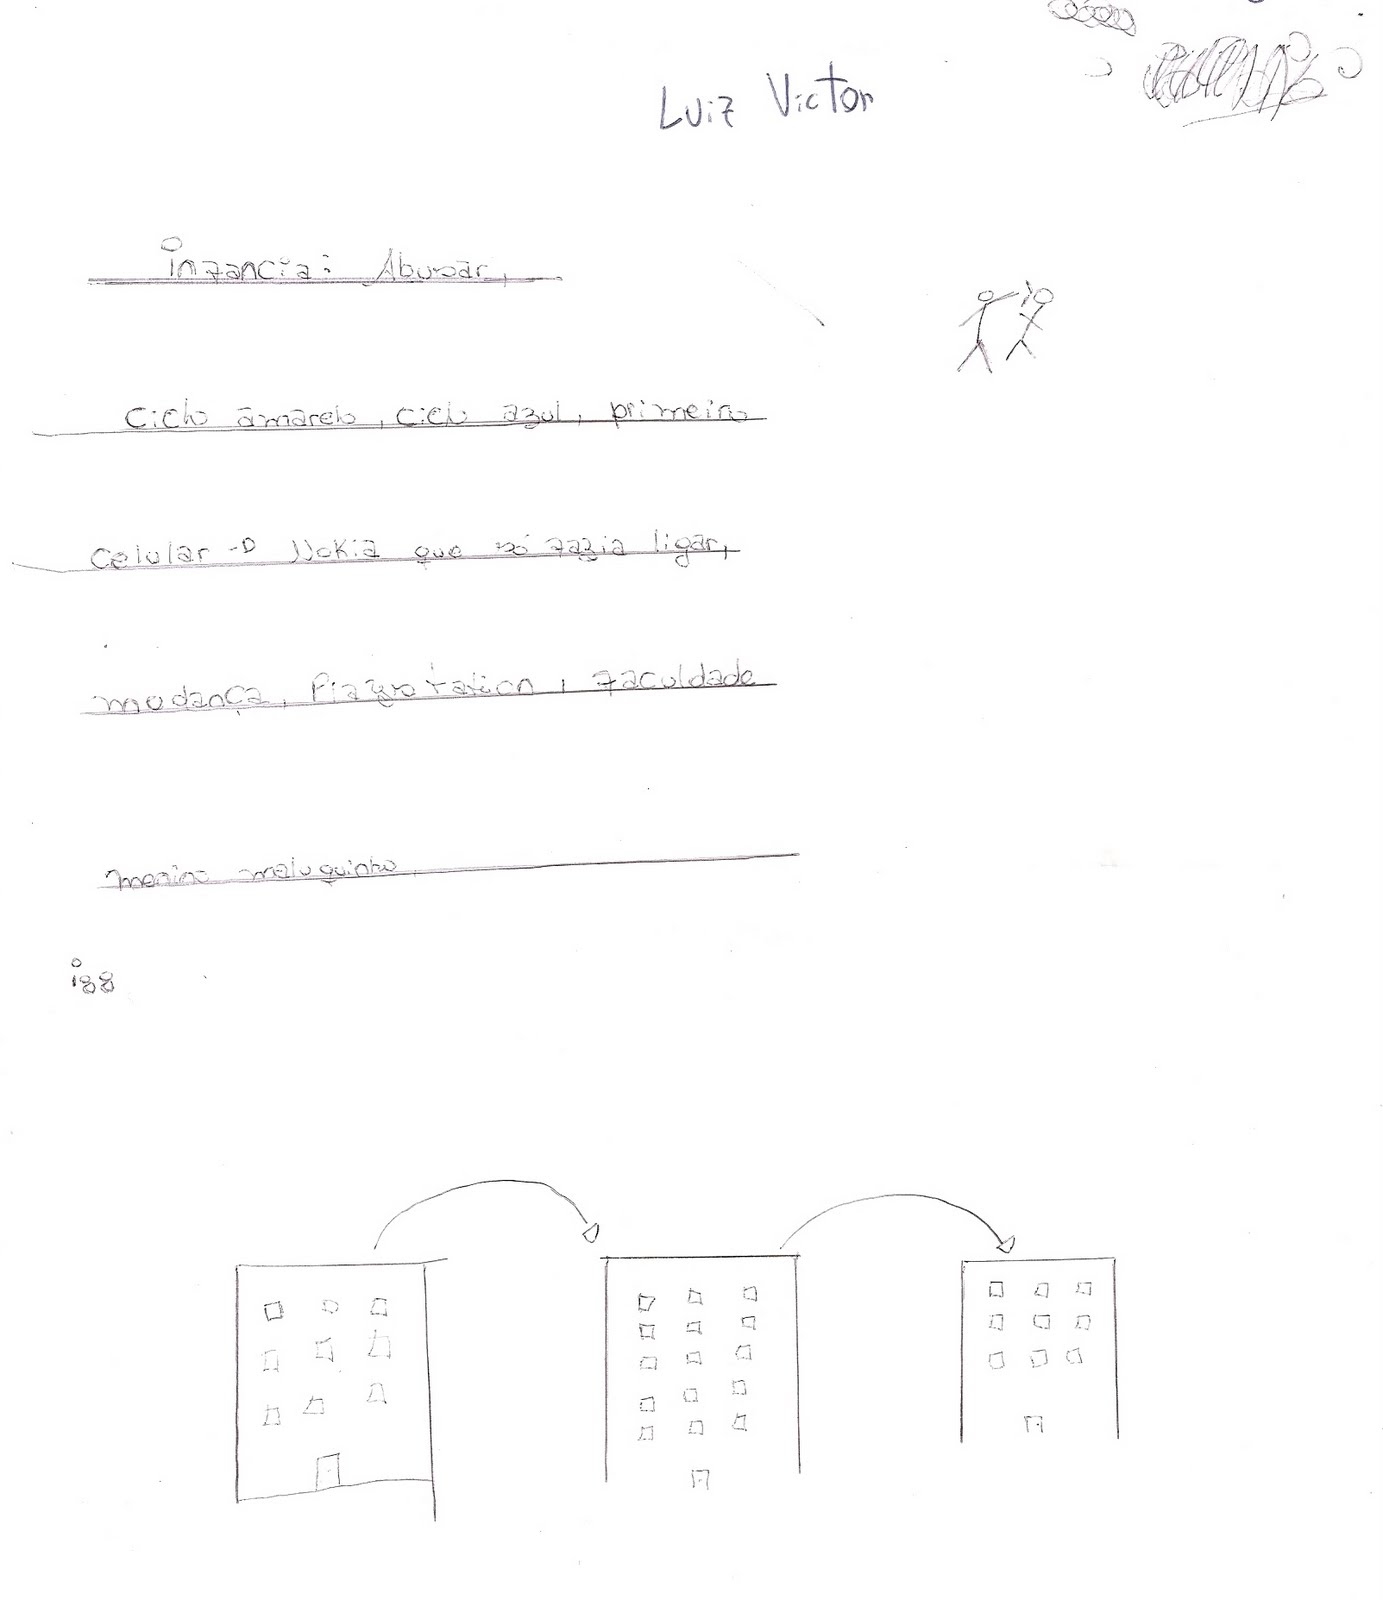 Luiz Victor
infancia: Abusar,
Ciclo amarelo, ciclo azul, primeiro
celular → Nokia que só fazia ligar,
mudança, , faculdade
menino maluquinho